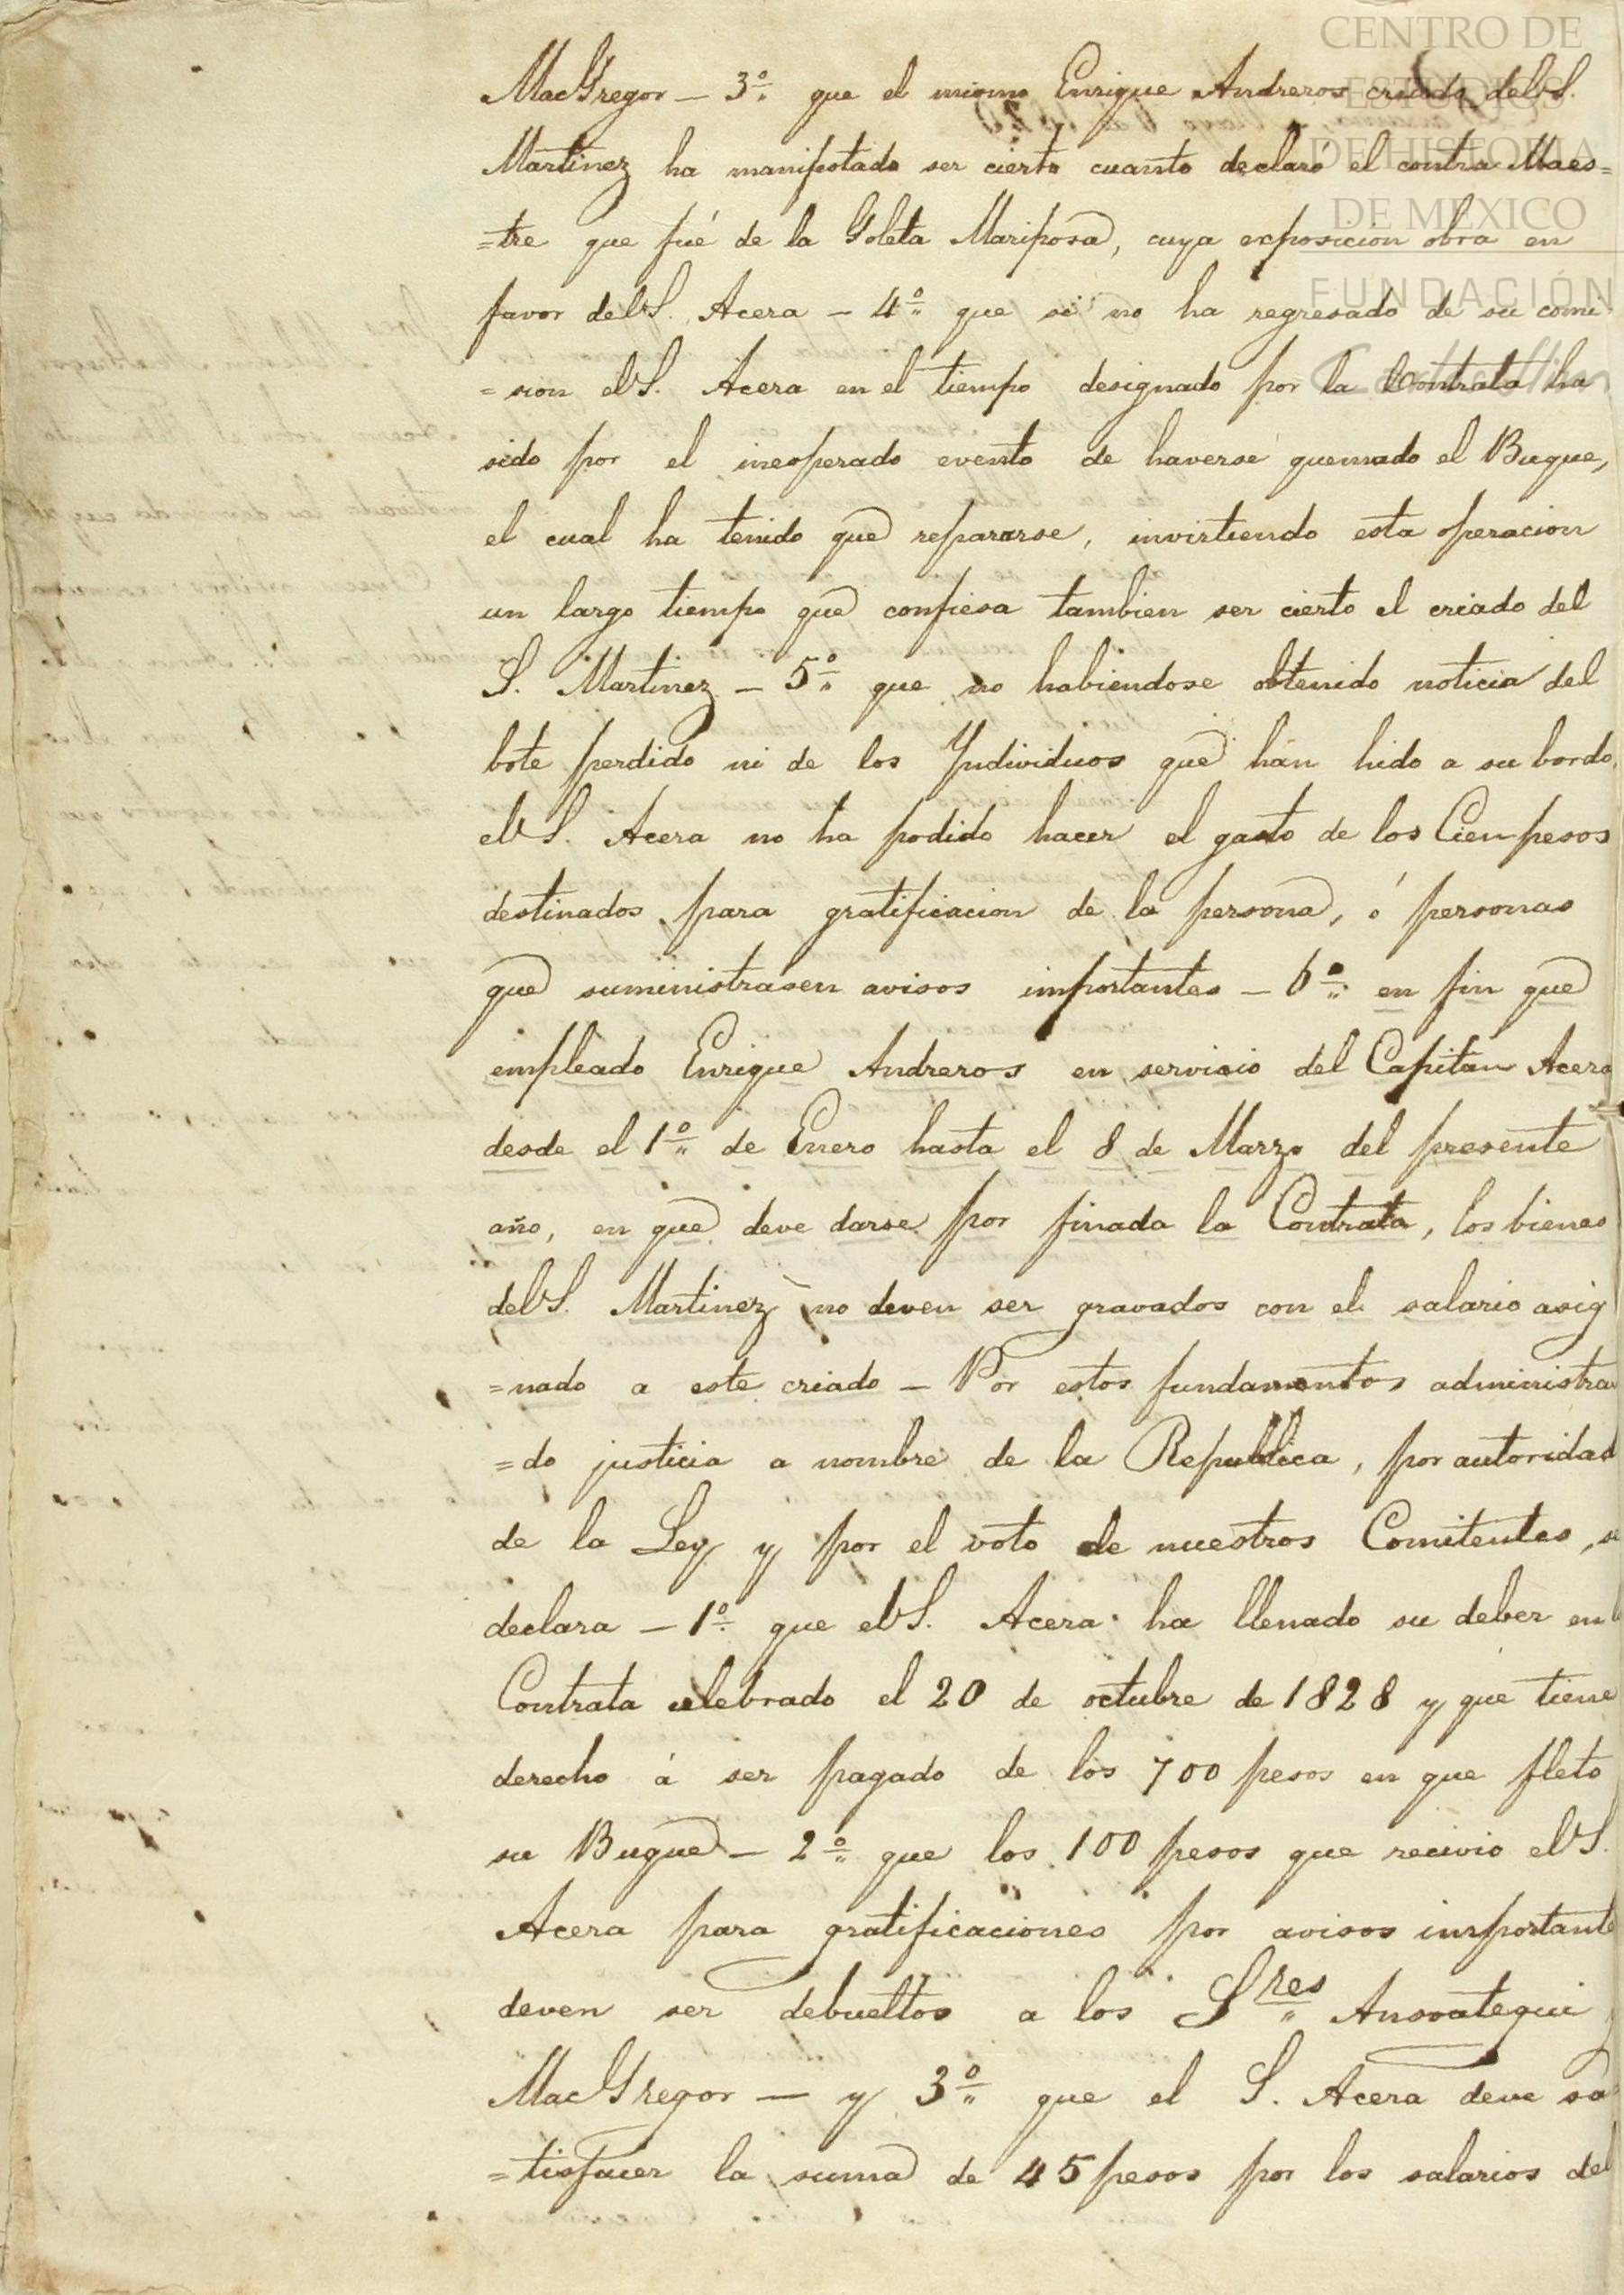 CENTRO DE
ESTUDIOS
DE HISTORIA
DE MÉXICO
FUNDACIÓN
MacGregor — 3.º que el mismo Enrique Andreros criado del S.
Martinez ha manifestado ser cierto cuanto declaró el contra Maes=
=tre que fué de la Goleta Mariposa, cuya exposicion obra en
favor del S. Acera — 4.º que si no ha regresado de su comi
=sion el S. Acera en el tiempo designado por la Contrata ha
sido por el inesperado evento de haverse quemado el Buque,
el cual ha tenido que repararse, invirtiendo esta operacion
un largo tiempo que confiesa tambien ser cierto el criado del
S. Martinez — 5.º que no habiendose obtenido noticia del
bote perdido ni de los Yndividuos que han hido a su bordo,
el S. Acera no ha podido hacer el gasto de los Cien pesos
destinados para gratificacion de la persona, ó personas
que suministrasen avisos importantes — 6.º en fin que
empleado Enrique Andreros en servicio del Capitan Acera
desde el 1.º de Enero hasta el 8 de Marzo del presente
año, en que deve darse por finada la Contrata, los bienes
del S. Martinez no deven ser gravados con el salario asig
=nado a este criado — Por estos fundamentos administra
=do justicia a nombre de la Republica, por autoridad
de la Ley y por el voto de nuestros Comitentes, se
declara — 1.º que el S. Acera ha llenado su deber en
Contrata celebrado el 20 de octubre de 1828 y que tiene
derecho á ser pagado de los 700 pesos en que fleto
su Buque — 2.º que los 100 pesos que recivio el S.
Acera para gratificaciones por avisos importante
deven ser debueltos a los Sres Ansoategui
MacGregor — y 3.º que el S. Acera deve sa
=tisfacer la suma de 45 pesos por los salarios del